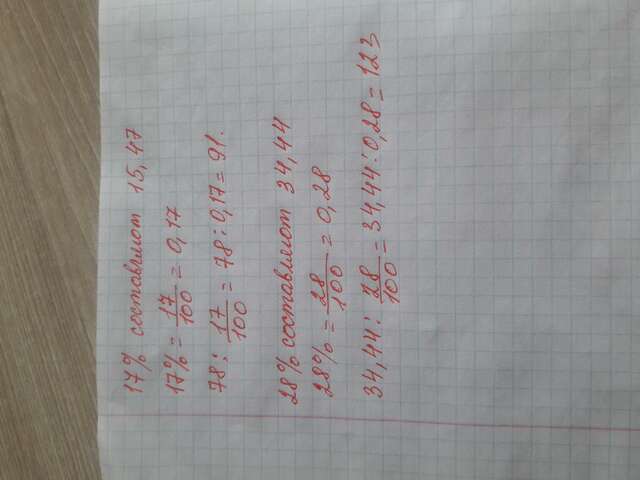 17% составляют 15,47
17% = 17/100 = 0,17
78 : 17/100 = 78 : 0,17 = 91.
28% составляют 34,44
28% = 28/100 = 0,28
34,44 : 28/100 = 34,44 : 0,28 = 123